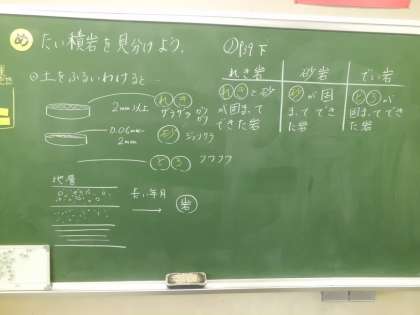 め たい積岩を見分けよう。
⊙土をふるいわけると…
2mm以上 れき
ザラザラ ガツガツ
0.06mm~2mm 砂 ジャリジャリ
どろ フワフワ
地層
長い年月 → 岩
れき岩 砂岩 でい岩
れきと砂が固まってできた岩
砂が固まってできた岩
どろが固まってできた岩